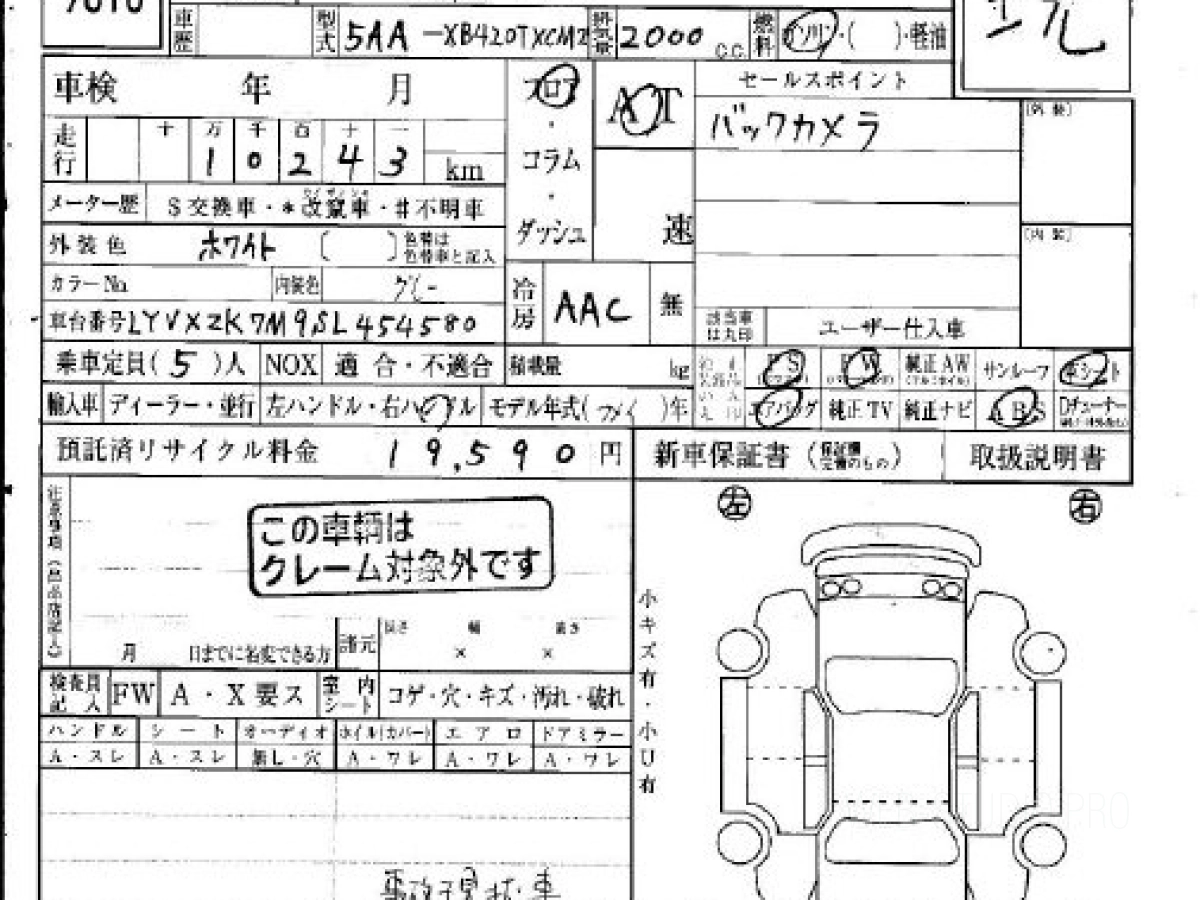 車歴 型式 5AA -XB420TXCM2 排気量 2000 C.C. 燃料 ガソリン・( )・軽油
車検 年 月 フロア AT セールスポイント
・ バックカメラ (外装)
走行 十 万 千 百 十 一 コラム
1 0 2 4 3 km
メーター歴 S交換車・*改竄車・#不明車 ・
ダッシュ 速
外装色 ホワイト ( ) 色替は色替車と記入 (内装)
カラーNo. 内装色 グレー 冷房 AAC 無
車台番号 LYVXZK7M9SL454580 該当車は丸印 ユーザー仕入車
乗車定員(5)人 NOX 適合・不適合 積載量 kg PS PW 純正AW サンルーフ 革シート
輸入車 ディーラー・並行 左ハンドル・右ハンドル モデル年式( )年 エアバッグ 純正TV 純正ナビ ABS Dチューナー
預託済リサイクル料金 19,590円 新車保証書 取扱説明書
左 右
この車輌は
クレーム対象外です
小キズ有・小U有
月 日までに名変できる方 諸元 長さ × 幅 × 高さ
検査員記入 FW A・X要ス 室内シート コゲ・穴・キズ・汚れ・破れ
ハンドル シート オーディオ ホイル(カバー) エアロ ドアミラー
A・スレ A・スレ 無し・穴 A・ワレ A・ワレ A・ワレ
事故現状車